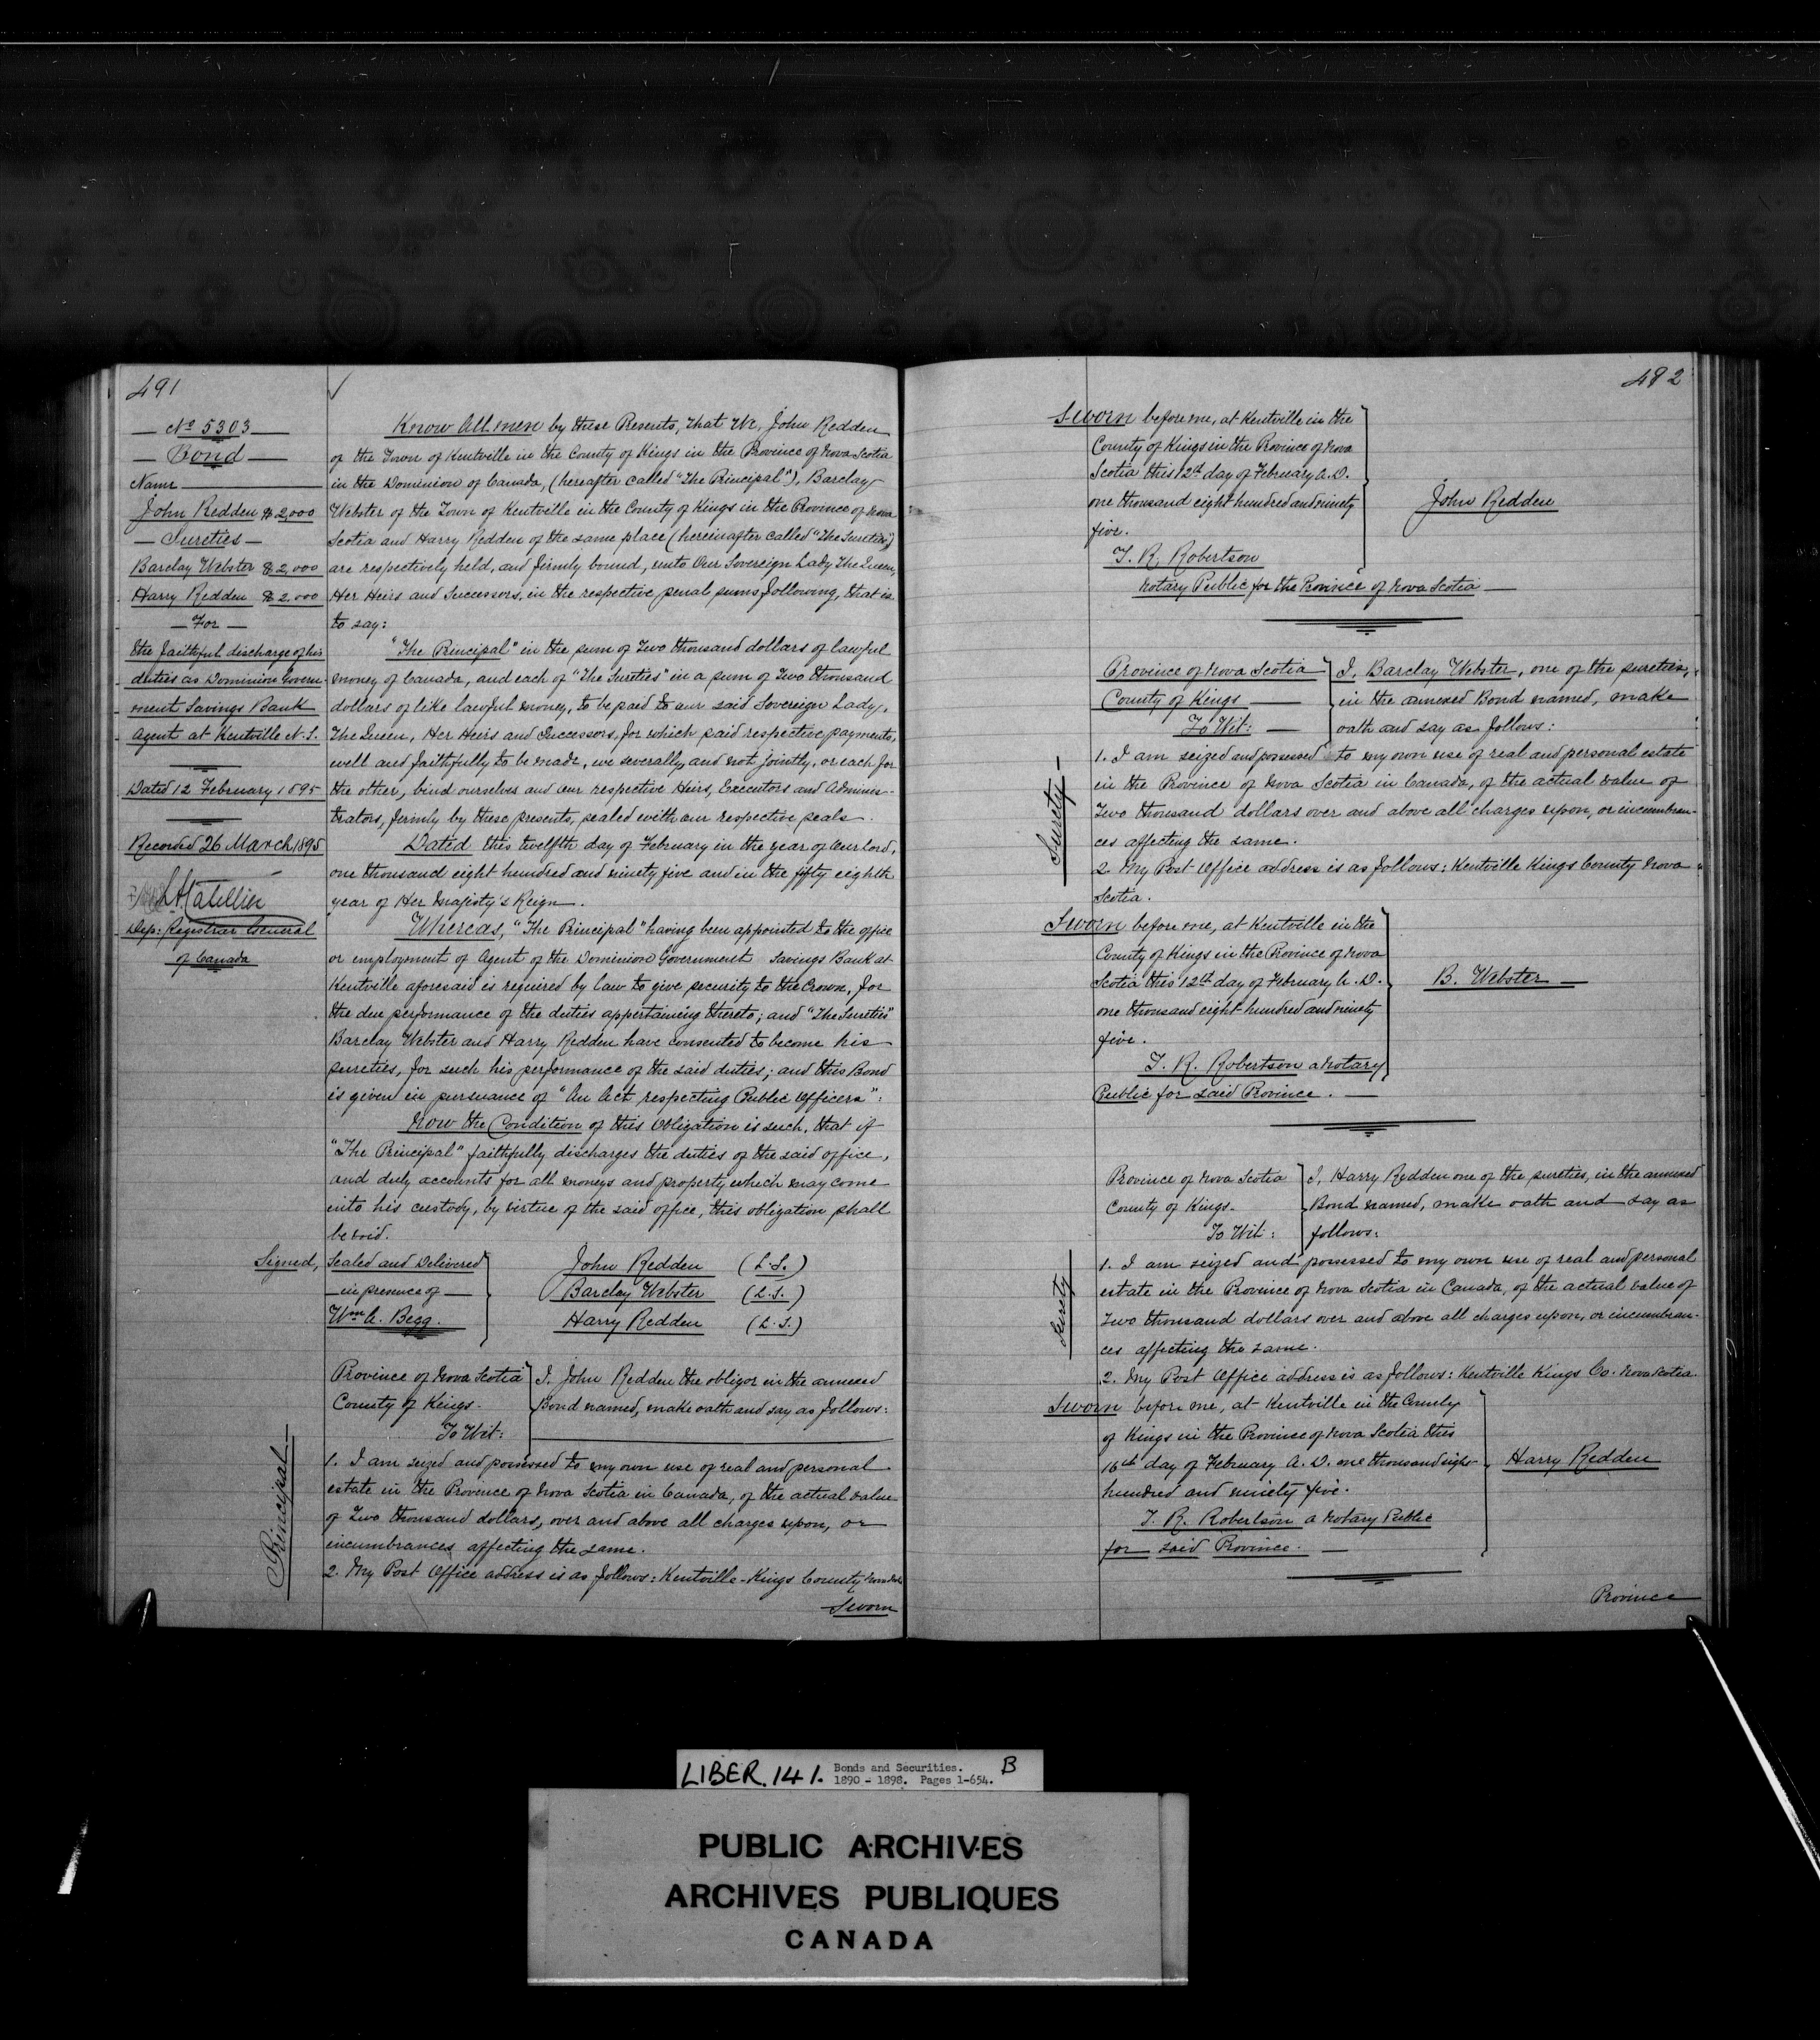 491
— No 5303 —
— Bond —
Name
John Redden $2,000
— Sureties —
Barclay Webster $2,000
Harry Redden $2,000
— For —
the faithful discharge of his
duties as Dominion Govern-
ment Savings Bank
Agent at Kentville N.S.
Dated 12 February 1895
Recorded 26 March 1895
Dep: Registrar General
of Canada
Know All men by these Presents, That We, John Redden
of the Town of Kentville in the County of Kings in the Province of Nova Scotia
in the Dominion of Canada, (hereafter called "The Principal"), Barclay
Webster of the Town of Kentville in the County of Kings in the Province of Nova
Scotia and Harry Redden of the same place (hereinafter called "The Sureties")
are respectively held, and firmly bound, unto Our Sovereign Lady The Queen,
Her Heirs and Successors, in the respective penal sums following, that is
to say:
"The Principal" in the sum of Two thousand dollars of lawful
money of Canada, and each of "The Sureties" in a sum of Two thousand
dollars of like lawful money, to be paid to our said Sovereign Lady,
The Queen, Her Heirs and Successors, for which said respective payments,
well and faithfully to be made, we severally, and not jointly, or each for
the other, bind ourselves and our respective Heirs, Executors and Adminis-
trators, firmly by these presents, sealed with our respective seals.
Dated this twelfth day of February in the year of Our Lord,
one thousand eight hundred and ninety five and in the fifty eighth
year of Her Majesty's Reign.
Whereas, "The Principal" having been appointed to the office
or employment of Agent of the Dominion Government Savings Bank at
Kentville aforesaid is required by law to give security to the Crown, for
the due performance of the duties appertaining thereto; and "The Sureties"
Barclay Webster and Harry Redden have consented to become his
sureties, for such his performance of the said duties; and this Bond
is given in pursuance of "An Act respecting Public Officers":
Now the Condition of this Obligation is such, that if
"The Principal" faithfully discharges the duties of the said office,
and duly accounts for all moneys and property which may come
into his custody, by virtue of the said office, this obligation shall
be void.
Signed, Sealed and Delivered
— in presence of —
Wm A. Begg.
John Redden (L.S.)
Barclay Webster (L.S.)
Harry Redden (L.S.)
Principal
Province of Nova Scotia
County of Kings.
To Wit:
I, John Redden the obligor in the annexed
Bond named, make oath and say as follows:
1. I am seized and possessed to my own use of real and personal
estate in the Province of Nova Scotia in Canada, of the actual value
of Two thousand dollars, over and above all charges upon, or
incumbrances affecting the same.
2. My Post Office address is as follows: Kentville - Kings County
Sworn
482
Sworn before me, at Kentville in the
County of Kings in the Province of Nova
Scotia this 12th day of February A.D.
one thousand eight hundred and ninety
five.
T. R. Robertson
Notary Public for the Province of Nova Scotia —
John Redden
Surety
Province of Nova Scotia
County of Kings —
To Wit: —
I, Barclay Webster, one of the sureties,
in the annexed Bond named, make
oath and say as follows:
1. I am seized and possessed to my own use of real and personal estate
in the Province of Nova Scotia in Canada, of the actual value of
Two thousand dollars over and above all charges upon, or incumbran-
ces affecting the same.
2. My Post Office address is as follows: Kentville Kings County Nova
Scotia.
Sworn before me, at Kentville in the
County of Kings in the Province of Nova
Scotia this 12th day of February A.D.
one thousand eight hundred and ninety
five.
T. R. Robertson a Notary
Public for said Province. —
B. Webster —
Surety
Province of Nova Scotia
County of Kings.
To Wit:
I, Harry Redden one of the sureties, in the annexed
Bond named, make oath and say as
follows:
1. I am seized and possessed to my own use of real and personal
estate in the Province of Nova Scotia in Canada, of the actual value of
Two thousand dollars over and above all charges upon, or incumbran-
ces affecting the same.
2. My Post Office address is as follows: Kentville Kings Co. Nova Scotia.
Sworn before me, at Kentville in the County
of Kings in the Province of Nova Scotia this
16th day of February A.D. one thousand eight
hundred and ninety five.
T. R. Robertson a Notary Public
for said Province. —
Harry Redden
Province
LIBER. 141. Bonds and Securities. B
1890 - 1898. Pages 1-654.
PUBLIC ARCHIVES
ARCHIVES PUBLIQUES
CANADA